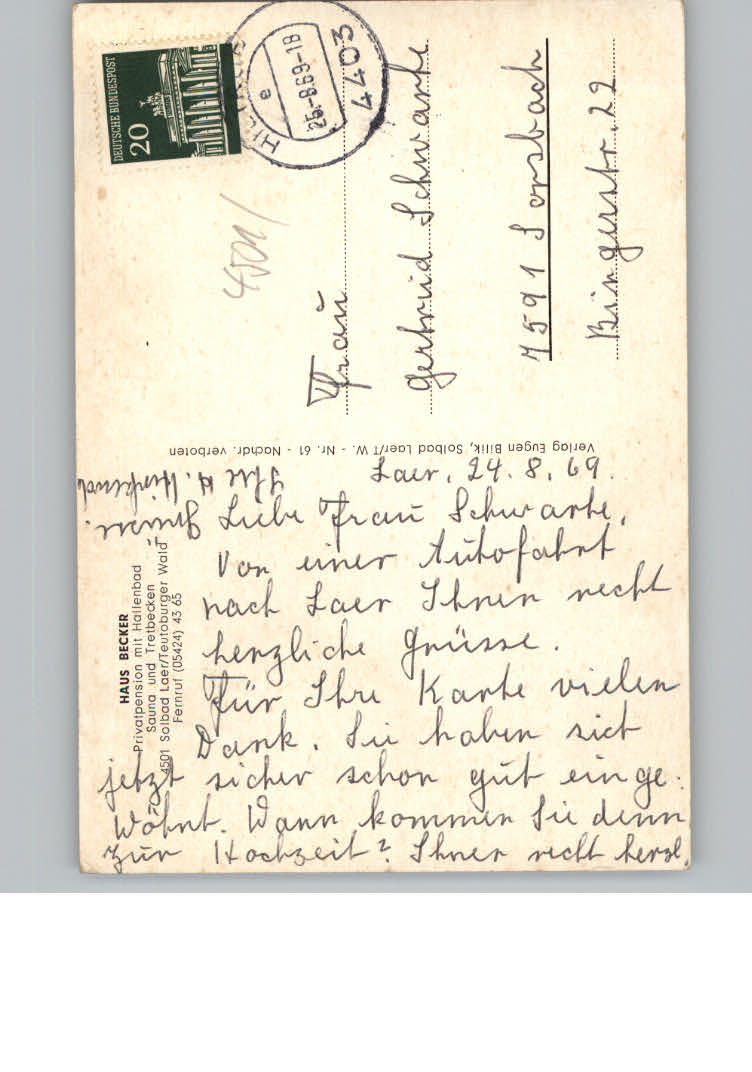 Laer, 24.8.69.
Liebe Frau Schwarte,
Von einer Autofahrt
nach Laer Ihnen recht
herzliche Grüsse.
Für Ihre Karte vielen
Dank. Sie haben sich
jetzt sicher schon gut einge-
wöhnt. Wann kommen Sie denn
zur Hochzeit? Ihnen recht herzl.
Grüsse
Ihr H.
HAUS BECKER
Privatpension mit Hallenbad
Sauna und Tretbecken
4501 Solbad Laer/Teutoburger Wald
Fernruf (05424) 43 65
Verlag Eugen Bilik, Solbad Laer/T.W. - Nr. 61 - Nachdr. verboten
DEUTSCHE BUNDESPOST
20
4403
e
26.-8.69-18
4501/
Frau
Gertrud Schwarte
7591 Sasbach
Bingerstr. 29